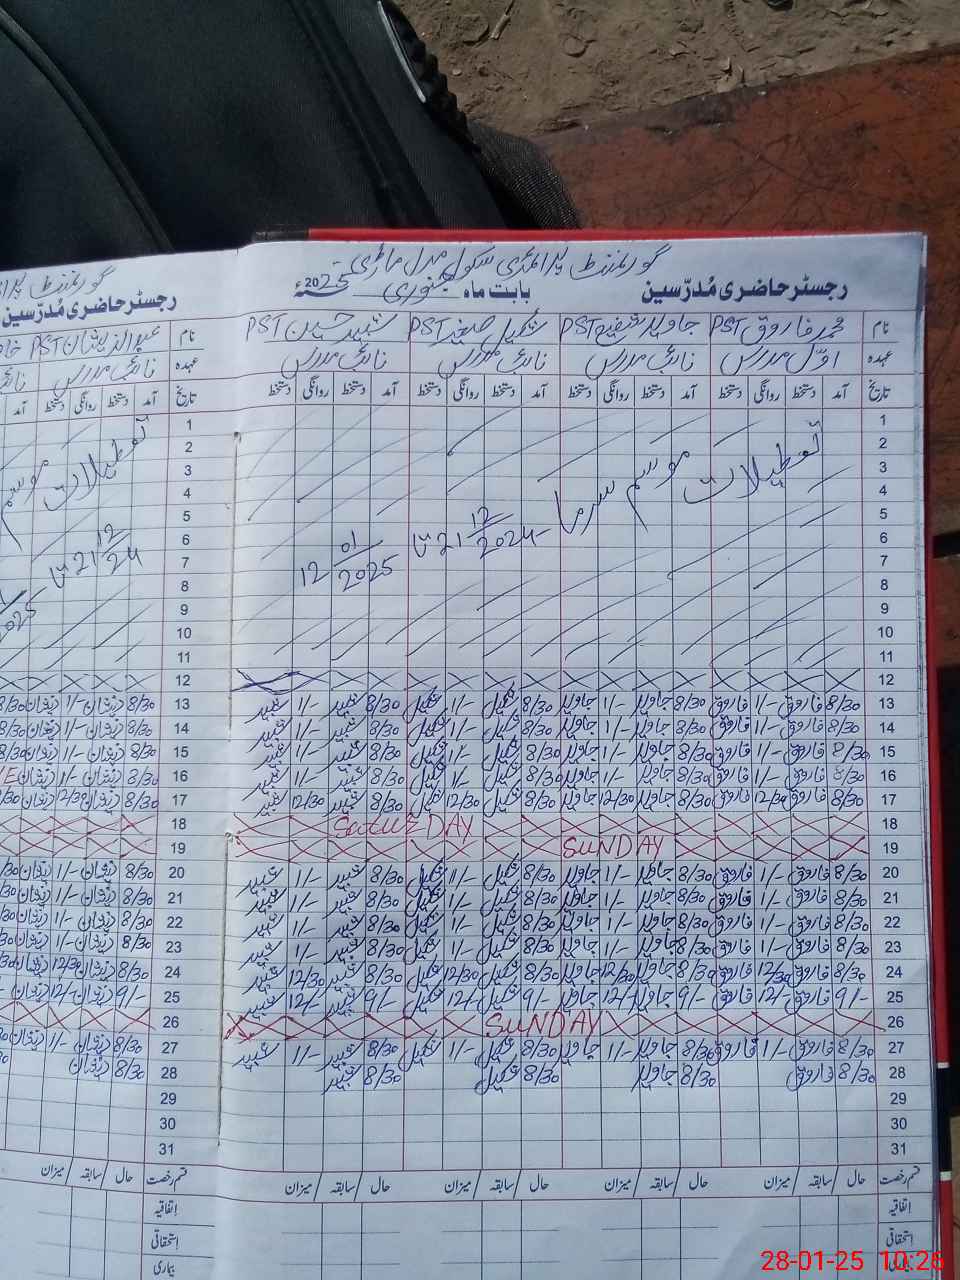 گورنمنٹ پرائمری سکول
رجسٹر حاضری مُدرّسین بابت ماہ جنوری 2025ء
نام محمد فاروق PST جاوید شفیع PST شکیل صغیر PST شبیر حسین PST
عہدہ اوّل مدرس نائب مدرس نائب مدرس نائب مدرس
تاریخ آمد دستخط روانگی دستخط آمد دستخط روانگی دستخط آمد دستخط روانگی دستخط آمد دستخط روانگی دستخط
1
2
3 تعطیلات موسم سرما
4
5
6 21 12/2024 تا
7 12 01/2025
8
9
10
11
12
13 8/30 فاروق 1/- فاروق 8/30 جاوید 1/- جاوید 8/30 شکیل 1/- شکیل 8/30 شبیر 1/- شبیر
14 8/30 فاروق 1/- فاروق 8/30 جاوید 1/- جاوید 8/30 شکیل 1/- شکیل 8/30 شبیر 1/- شبیر
15 8/30 فاروق 1/- فاروق 8/30 جاوید 1/- جاوید 8/30 شکیل 1/- شکیل 8/30 شبیر 1/- شبیر
16 8/30 فاروق 1/- فاروق 8/30 جاوید 1/- جاوید 8/30 شکیل 1/- شکیل 8/30 شبیر 1/- شبیر
17 8/30 فاروق 12/30 فاروق 8/30 جاوید 12/30 جاوید 8/30 شکیل 12/30 شکیل 8/30 شبیر 12/30 شبیر
18
19 SUNDAY
20 8/30 فاروق 1/- فاروق 8/30 جاوید 1/- جاوید 8/30 شکیل 1/- شکیل 8/30 شبیر 1/- شبیر
21 8/30 فاروق 1/- فاروق 8/30 جاوید 1/- جاوید 8/30 شکیل 1/- شکیل 8/30 شبیر 1/- شبیر
22 8/30 فاروق 1/- فاروق 8/30 جاوید 1/- جاوید 8/30 شکیل 1/- شکیل 8/30 شبیر 1/- شبیر
23 8/30 فاروق 1/- فاروق 8/30 جاوید 1/- جاوید 8/30 شکیل 1/- شکیل 8/30 شبیر 1/- شبیر
24 8/30 فاروق 12/30 فاروق 8/30 جاوید 12/30 جاوید 8/30 شکیل 12/30 شکیل 8/30 شبیر 12/30 شبیر
25 9/- فاروق 12/- فاروق 9/- جاوید 12/- جاوید 9/- شکیل 12/- شکیل 9/- شبیر 12/- شبیر
26 SUNDAY
27 8/30 فاروق 1/- فاروق 8/30 جاوید 1/- جاوید 8/30 شکیل 1/- شکیل 8/30 شبیر 1/- شبیر
28 8/30 فاروق 8/30 جاوید 8/30 شکیل 8/30 شبیر
29
30
31
قسم رخصت حال / سابقہ / میزان حال / سابقہ / میزان حال / سابقہ / میزان حال / سابقہ / میزان
اتفاقیہ
استحقاقی
بیماری
گورنمنٹ
رجسٹر حاضری مُدرّسین
نام PST
عہدہ نائب مدرس
تاریخ آمد دستخط روانگی دستخط آمد
1
2
3 تعطیلات موسم
4
5
6 21 12/24 تا
7
8
9
10
11
12
13 8/30 ذیشان 1/- ذیشان
14 8/30 ذیشان 1/- ذیشان
15 8/30 ذیشان 1/- ذیشان
16 8/30 ذیشان 1/- ذیشان
17 8/30 ذیشان 12/30 ذیشان
18
19
20 8/30 ذیشان 1/- ذیشان
21 8/30 ذیشان 1/- ذیشان
22 8/30 ذیشان 1/- ذیشان
23 8/30 ذیشان 1/- ذیشان
24 8/30 ذیشان 12/30 ذیشان
25 9/- ذیشان 12/- ذیشان
26
27 8/30 ذیشان 1/- ذیشان
28 8/30 ذیشان
29
30
31
قسم رخصت حال / سابقہ / میزان
اتفاقیہ
استحقاقی
بیماری
28-01-25 10:26